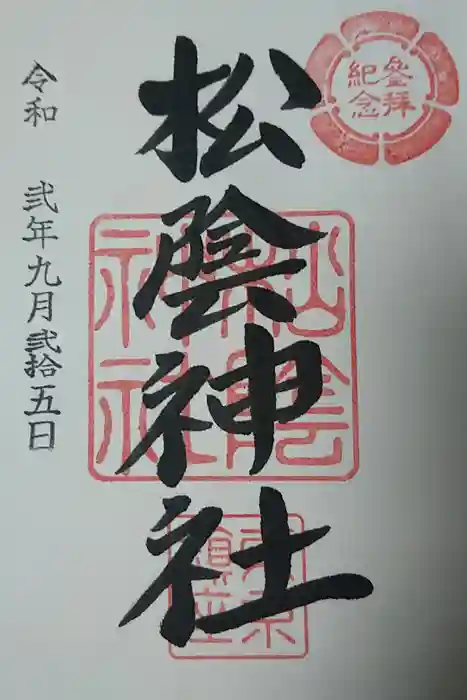 參拝
紀念
松陰神社
松陰
神社
東京
鎮座
令和 弐年九月弐拾五日